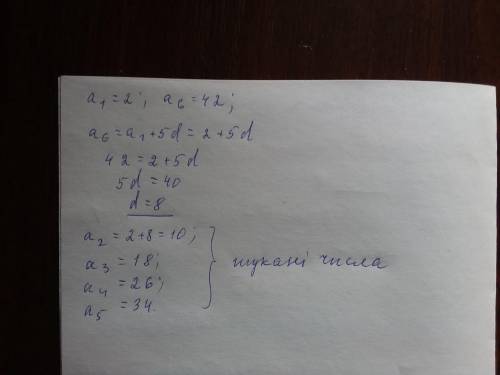 a₁ = 2; a₆ = 42;
a₆ = a₁ + 5d = 2 + 5d
42 = 2 + 5d
5d = 40
d = 8
a₂ = 2+8 = 10;
a₃ = 18;
a₄ = 26;
a₅ = 34.
шукані числа